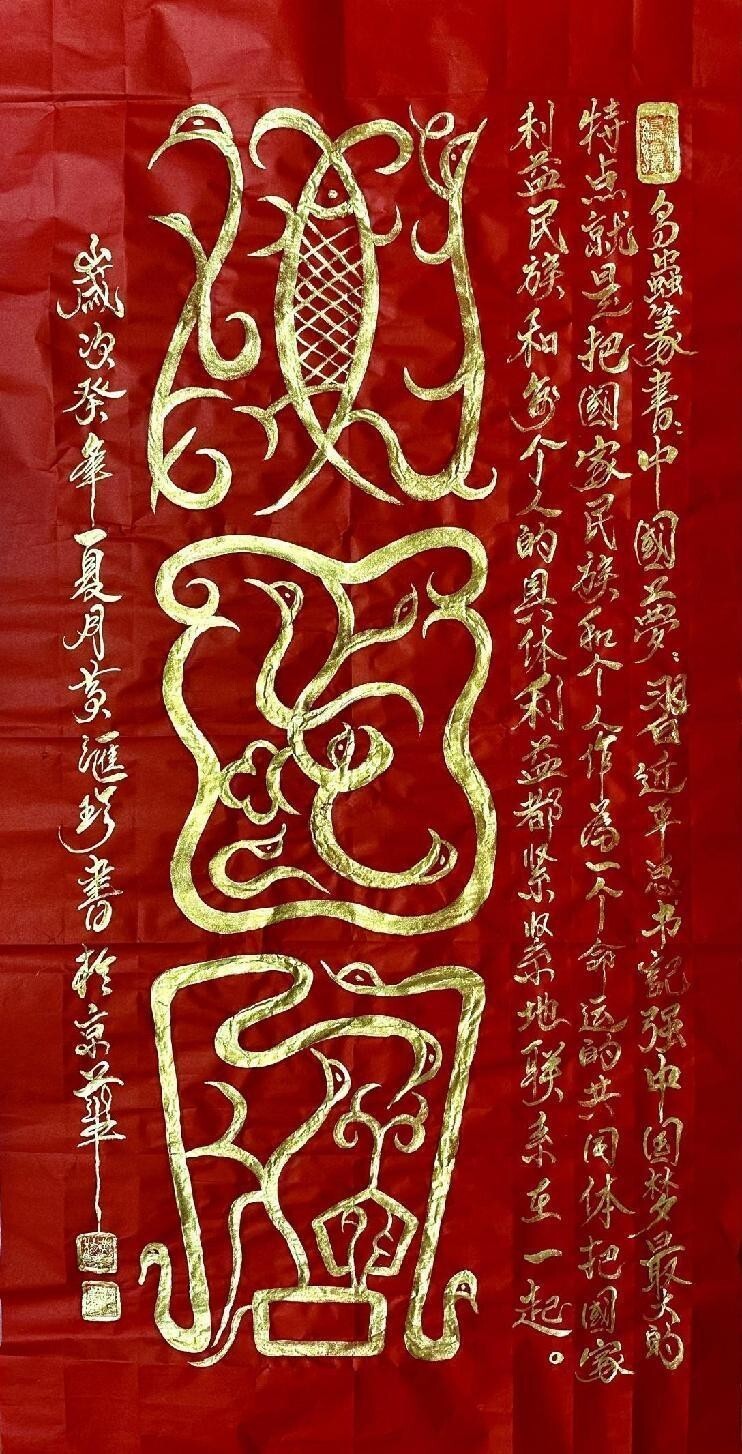 鳥蟲篆書:中國夢:習近平总书記强中国梦最大的
特点就是把國家民族和个人作為一个命运的共同体把國家
利益民族和每个人的具体利益都紧紧地联系在一起。
歲次癸年夏月黄滙珍書於京華